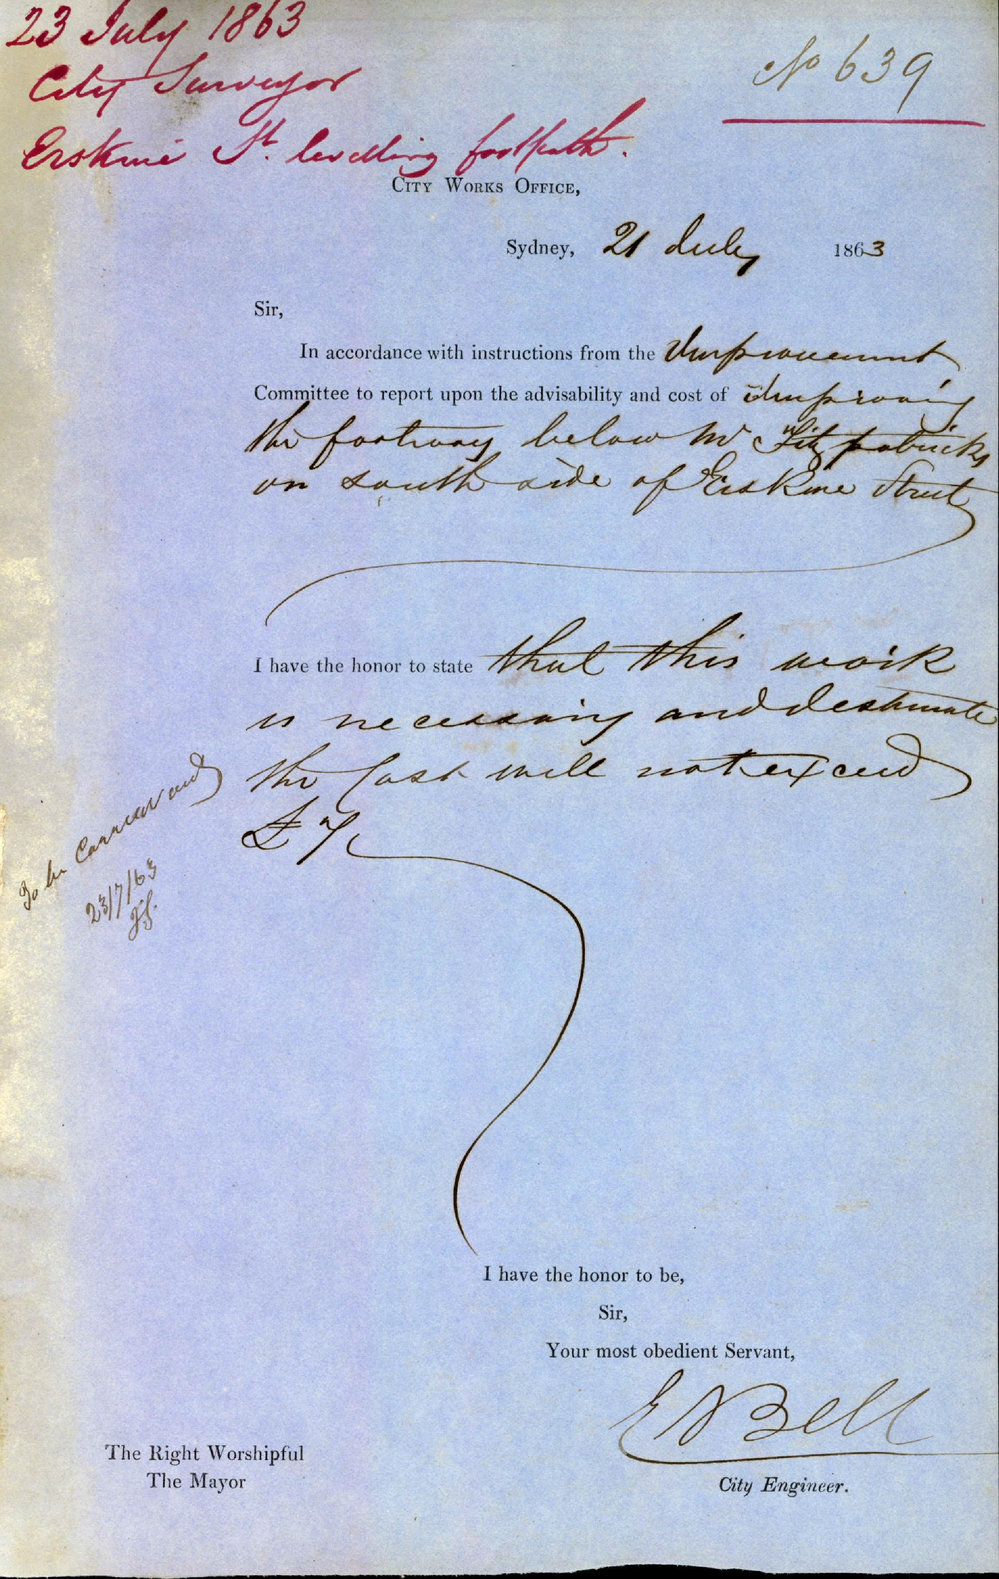 23 July 1863
City Surveyor
Erskine St. levelling footpath.
No 639
CITY WORKS OFFICE,
Sydney, 21 July 1863
Sir,
In accordance with instructions from the Improvement
Committee to report upon the advisability and cost of improving
the footway below Mr Fitzpatricks
on south side of Erskine Street
I have the honor to state that this work
is necessary and I estimate
the Cost will not exceed
£7
To be
23/7/63
I have the honor to be,
Sir,
Your most obedient Servant,
E Bell
City Engineer.
The Right Worshipful
The Mayor